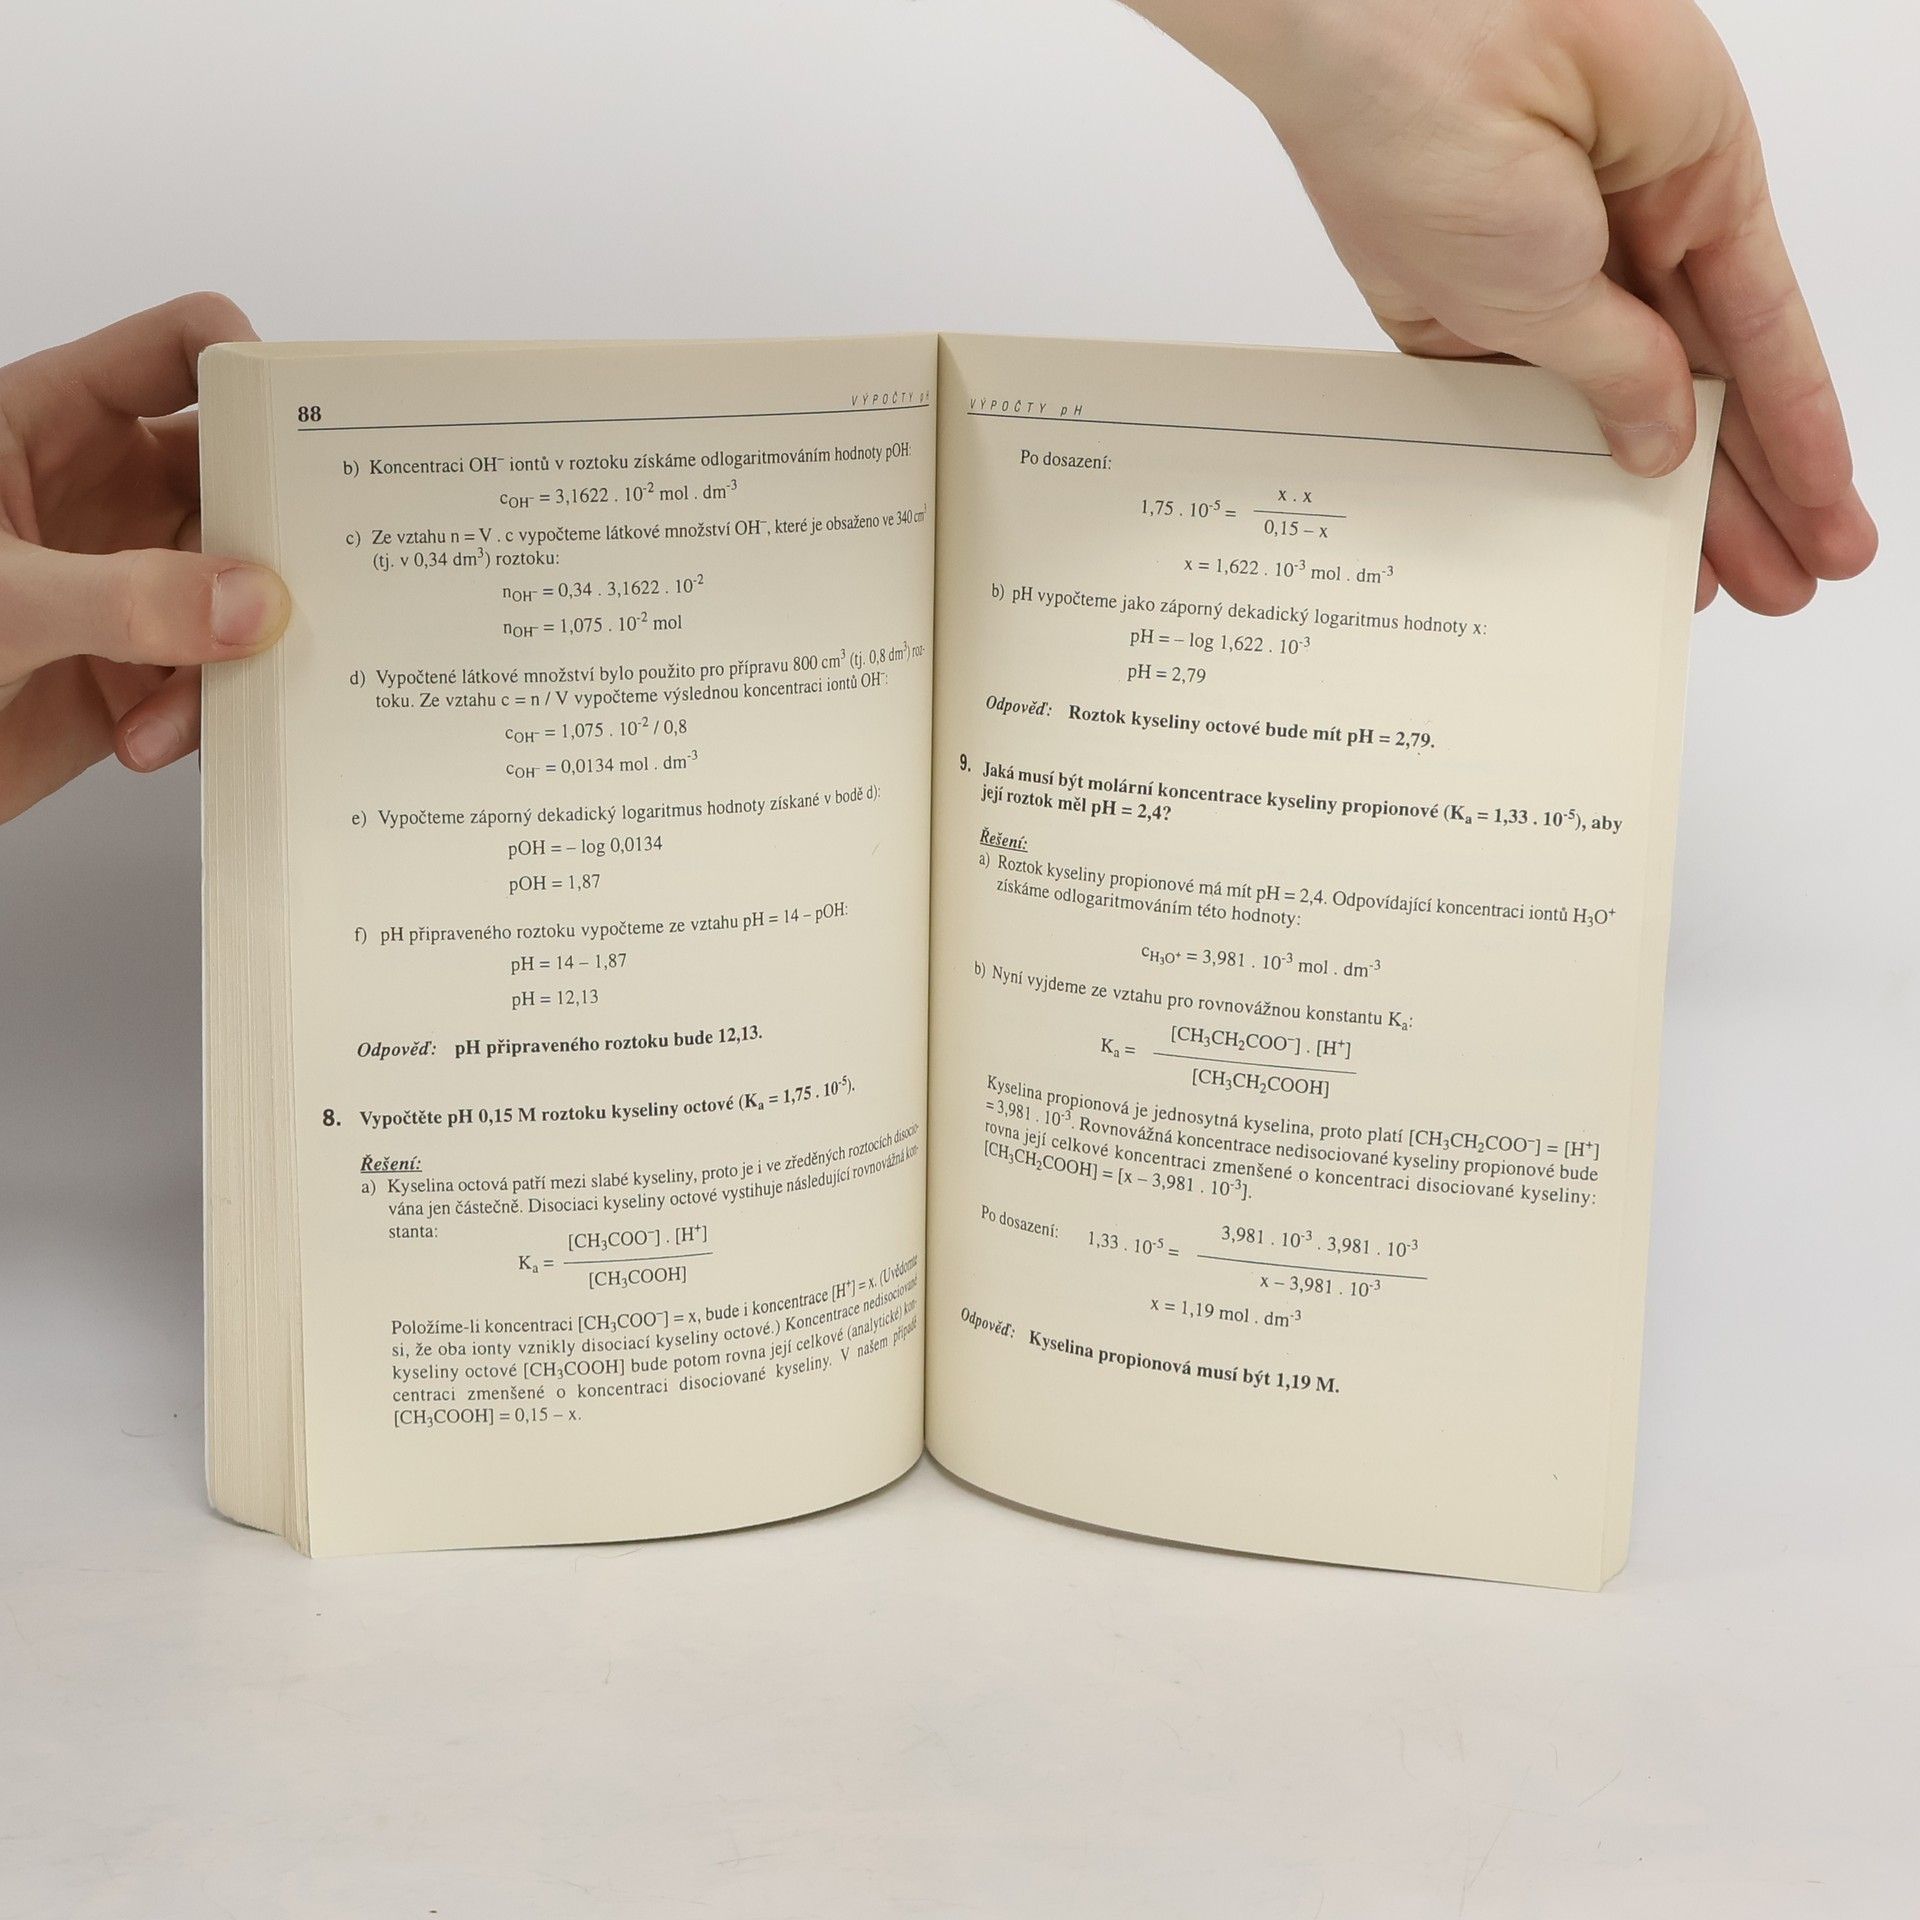 88
VÝPOČTY pH
b) Koncentraci OH⁻ iontů v roztoku získáme odlogaritmováním hodnoty pOH:
cOH⁻ = 3,1622 . 10⁻² mol . dm⁻³
c) Ze vztahu n = V . c vypočteme látkové množství OH⁻, které je obsaženo ve 340 cm³
(tj. v 0,34 dm³) roztoku:
nOH⁻ = 0,34 . 3,1622 . 10⁻²
nOH⁻ = 1,075 . 10⁻² mol
d) Vypočtené látkové množství bylo použito pro přípravu 800 cm³ (tj. 0,8 dm³) roz-
toku. Ze vztahu c = n / V vypočteme výslednou koncentraci iontů OH⁻:
cOH⁻ = 1,075 . 10⁻² / 0,8
cOH⁻ = 0,0134 mol . dm⁻³
e) Vypočteme záporný dekadický logaritmus hodnoty získané v bodě d):
pOH = – log 0,0134
pOH = 1,87
f) pH připraveného roztoku vypočteme ze vztahu pH = 14 – pOH:
pH = 14 – 1,87
pH = 12,13
Odpověď: pH připraveného roztoku bude 12,13.
8. Vypočtěte pH 0,15 M roztoku kyseliny octové (Kₐ = 1,75 . 10⁻⁵).
Řešení:
a) Kyselina octová patří mezi slabé kyseliny, proto je i ve zředěných roztocích disocio-
vána jen částečně. Disociaci kyseliny octové vystihuje následující rovnovážná kon-
stanta:
[CH₃COO⁻] . [H⁺]
Kₐ =
[CH₃COOH]
Položíme-li koncentraci [CH₃COO⁻] = x, bude i koncentrace [H⁺] = x. (Uvědomte
si, že oba ionty vznikly disociací kyseliny octové.) Koncentrace nedisociované
kyseliny octové [CH₃COOH] bude potom rovna její celkové (analytické) kon-
centraci zmenšené o koncentraci disociované kyseliny. V našem případě
[CH₃COOH] = 0,15 – x.
VÝPOČTY pH
Po dosazení:
x . x
1,75 . 10⁻⁵ =
0,15 – x
x = 1,622 . 10⁻³ mol . dm⁻³
b) pH vypočteme jako záporný dekadický logaritmus hodnoty x:
pH = – log 1,622 . 10⁻³
pH = 2,79
Odpověď: Roztok kyseliny octové bude mít pH = 2,79.
9. Jaká musí být molární koncentrace kyseliny propionové (Kₐ = 1,33 . 10⁻⁵), aby
její roztok měl pH = 2,4?
Řešení:
a) Roztok kyseliny propionové má mít pH = 2,4. Odpovídající koncentraci iontů H₃O⁺
získáme odlogaritmováním této hodnoty:
cH₃O⁺ = 3,981 . 10⁻³ mol . dm⁻³
b) Nyní vyjdeme ze vztahu pro rovnovážnou konstantu Kₐ:
[CH₃CH₂COO⁻] . [H⁺]
Kₐ =
[CH₃CH₂COOH]
Kyselina propionová je jednosytná kyselina, proto platí [CH₃CH₂COO⁻] = [H⁺]
= 3,981 . 10⁻³. Rovnovážná koncentrace nedisociované kyseliny propionové bude
rovna její celkové koncentraci zmenšené o koncentraci disociované kyseliny:
[CH₃CH₂COOH] = [x – 3,981 . 10⁻³].
3,981 . 10⁻³ . 3,981 . 10⁻³
Po dosazení: 1,33 . 10⁻⁵ =
x – 3,981 . 10⁻³
x = 1,19 mol . dm⁻³
Odpověď: Kyselina propionová musí být 1,19 M.